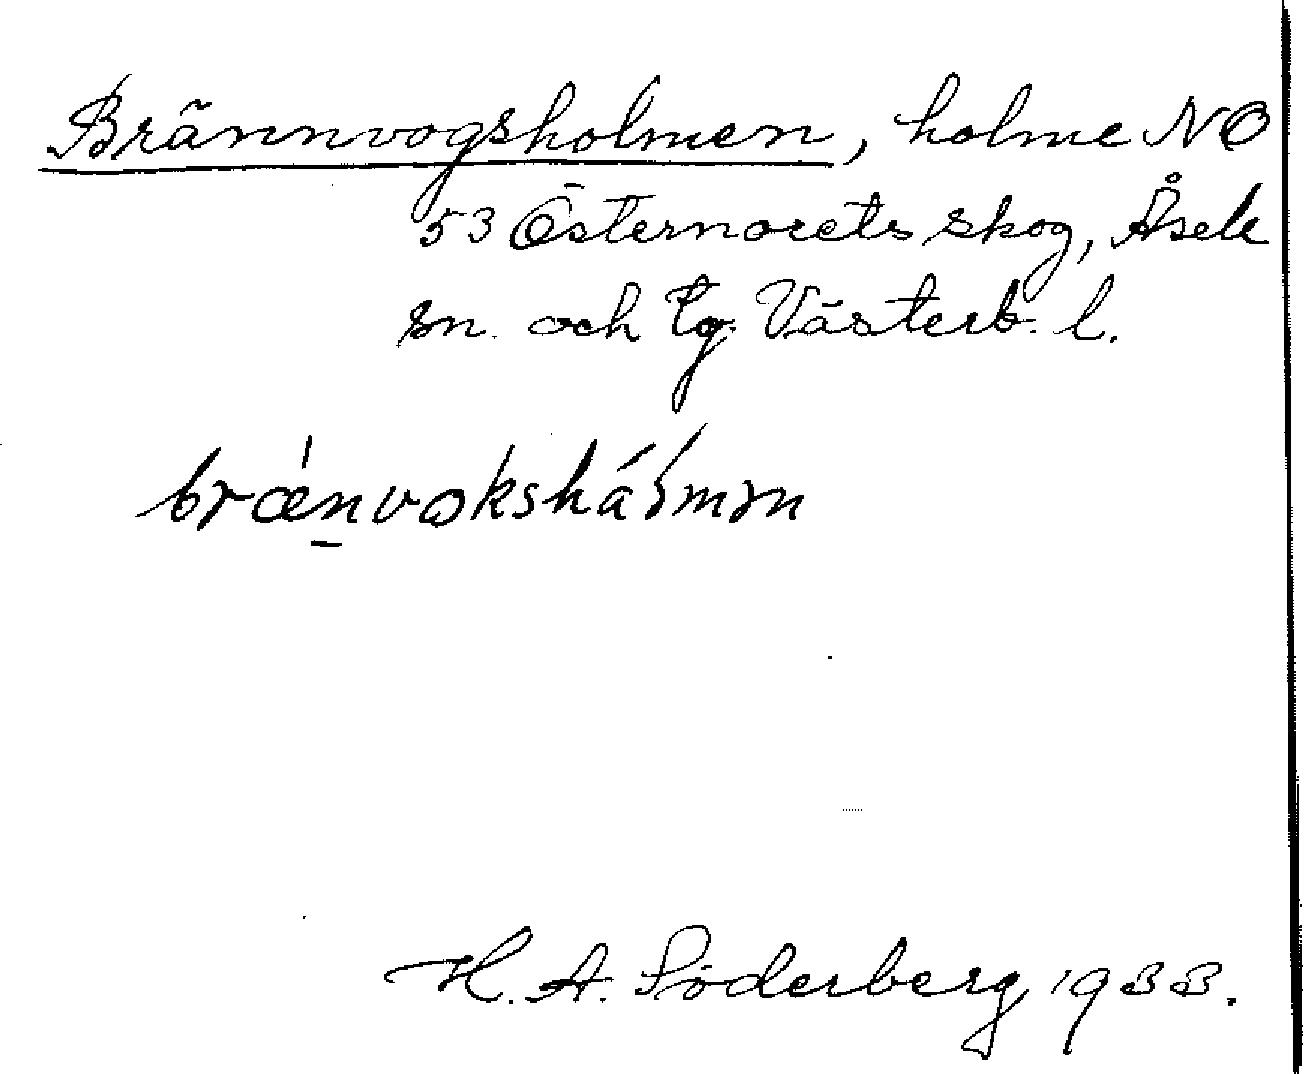 Brännvogsholmen, holme NO
53 Östernorets skog, Åsele
sn. och tg. Västerb. l.
brǽn̲vωksháɮmәn
H. A. Söderberg 1933.